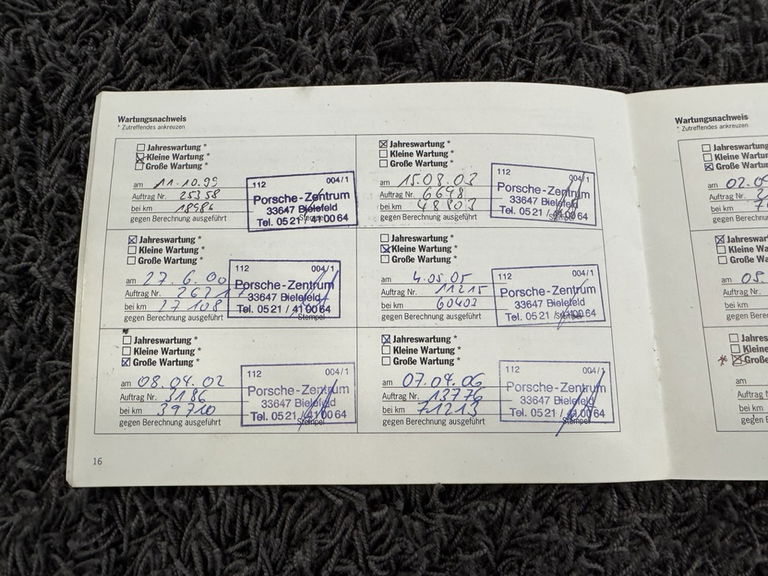 Wartungsnachweis
* Zutreffendes ankreuzen
Jahreswartung *
Kleine Wartung *
Große Wartung *
am 11.10.99
Auftrag Nr. 25358
bei km 18986
gegen Berechnung ausgeführt
112 004/1
Porsche-Zentrum
33647 Bielefeld
Tel. 05 21 / 41 00 64
Jahreswartung *
Kleine Wartung *
Große Wartung *
am 27.6.00
Auftrag Nr.
bei km 27108
gegen Berechnung ausgeführt
112 004/1
Porsche-Zentrum
33647 Bielefeld
Tel. 05 21 / 41 00 64
Stempel
Jahreswartung *
Kleine Wartung *
Große Wartung *
am 08.04.02
Auftrag Nr. 3186
bei km 39710
gegen Berechnung ausgeführt
112 004/1
Porsche-Zentrum
33647 Bielefeld
Tel. 05 21 / 41 00 64
Stempel
16
Jahreswartung *
Kleine Wartung *
Große Wartung *
am 15.08.03
Auftrag Nr. 6698
bei km 48803
gegen Berechnung ausgeführt
112 004/1
Porsche-Zentrum
33647 Bielefeld
Tel. 05 21 / 41 00 64
Jahreswartung *
Kleine Wartung *
Große Wartung *
am 4.05.05
Auftrag Nr. 11215
bei km 60403
gegen Berechnung ausgeführt
112 004/1
Porsche-Zentrum
33647 Bielefeld
Tel. 05 21 / 41 00 64
Jahreswartung *
Kleine Wartung *
Große Wartung *
am 07.04.06
Auftrag Nr. 13776
bei km 71213
gegen Berechnung ausgeführt
112 004/1
Porsche-Zentrum
33647 Bielefeld
Tel. 05 21 / 41 00 64
Stempel
Wartungsnachweis
* Zutreffendes ankreuzen
Jahreswartung
Kleine Wartung
Große Wartung
am 02.0
Auftrag Nr.
bei km
gegen Berechnung
Jahreswartung
Kleine Wartung
Große Wartung
am 05.
Auftrag Nr.
bei km
gegen Berechnung
Jahres
Kleine
* Große
am
Auftrag
bei km
gegen Be